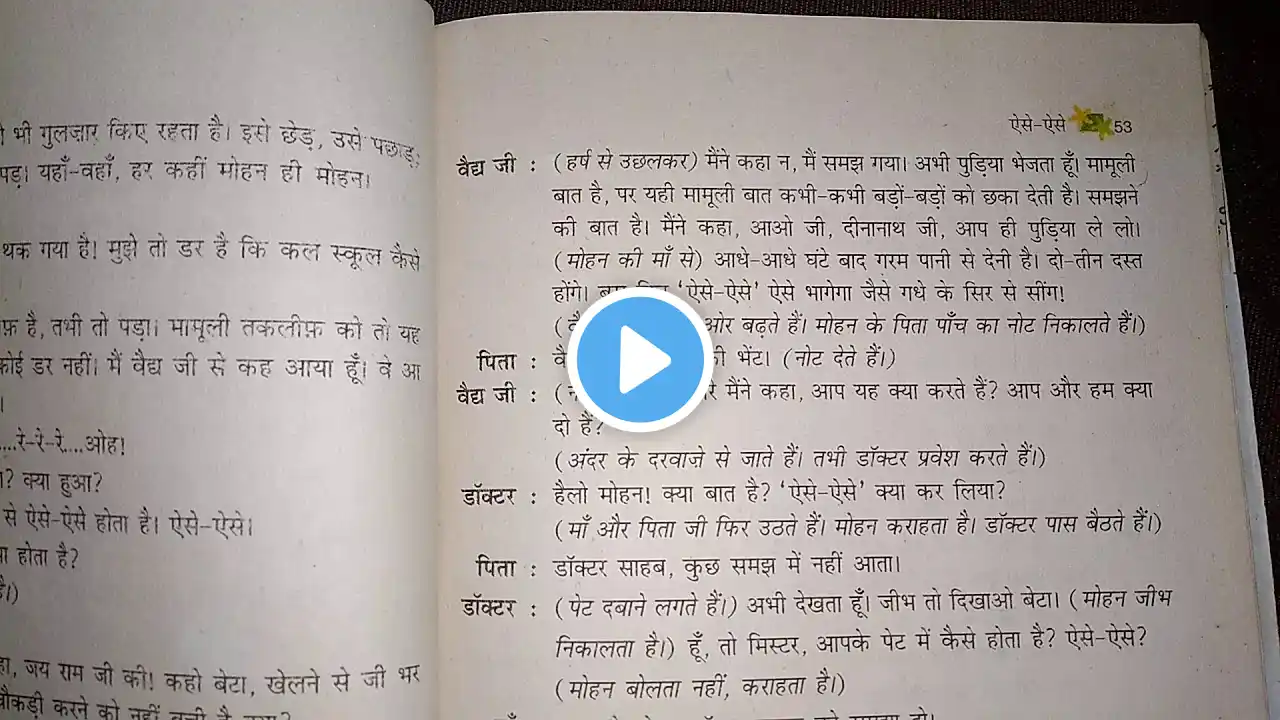 भी गुलज़ार किए रहता है। इसे छेड़, उसे पछाड़;
पड़। यहाँ-वहाँ, हर कहीं मोहन ही मोहन।
थक गया है! मुझे तो डर है कि कल स्कूल कैसे
है, तभी तो पड़ा। मामूली तकलीफ़ को तो यह
कोई डर नहीं। मैं वैद्य जी से कह आया हूँ। वे आ
....रे-रे-रे....ओह!
? क्या हुआ?
से ऐसे-ऐसे होता है। ऐसे-ऐसे।
होता है?
है।)
जय राम जी की! कहो बेटा, खेलने से जी भर
चौकड़ी करने को नहीं बची है
ऐसे-ऐसे 53
वैद्य जी : (हर्ष से उछलकर) मैंने कहा न, मैं समझ गया। अभी पुड़िया भेजता हूँ। मामूली
बात है, पर यही मामूली बात कभी-कभी बड़ों-बड़ों को छका देती है। समझने
की बात है। मैंने कहा, आओ जी, दीनानाथ जी, आप ही पुड़िया ले लो।
(मोहन की माँ से) आधे-आधे घंटे बाद गरम पानी से देनी है। दो-तीन दस्त
होंगे। 'ऐसे-ऐसे' ऐसे भागेगा जैसे गधे के सिर से सींग!
ओर बढ़ते हैं। मोहन के पिता पाँच का नोट निकालते हैं।)
पिता : भेंट। (नोट देते हैं।)
वैद्य जी : मैंने कहा, आप यह क्या करते हैं? आप और हम क्या
दो हैं?
(अंदर के दरवाजे से जाते हैं। तभी डॉक्टर प्रवेश करते हैं।)
डॉक्टर : हैलो मोहन! क्या बात है? 'ऐसे-ऐसे' क्या कर लिया?
(माँ और पिता जी फिर उठते हैं। मोहन कराहता है। डॉक्टर पास बैठते हैं।)
पिता : डॉक्टर साहब, कुछ समझ में नहीं आता।
डॉक्टर : (पेट दबाने लगते हैं।) अभी देखता हूँ। जीभ तो दिखाओ बेटा। (मोहन जीभ
निकालता है।) हूँ, तो मिस्टर, आपके पेट में कैसे होता है? ऐसे-ऐसे?
(मोहन बोलता नहीं, कराहता है।)